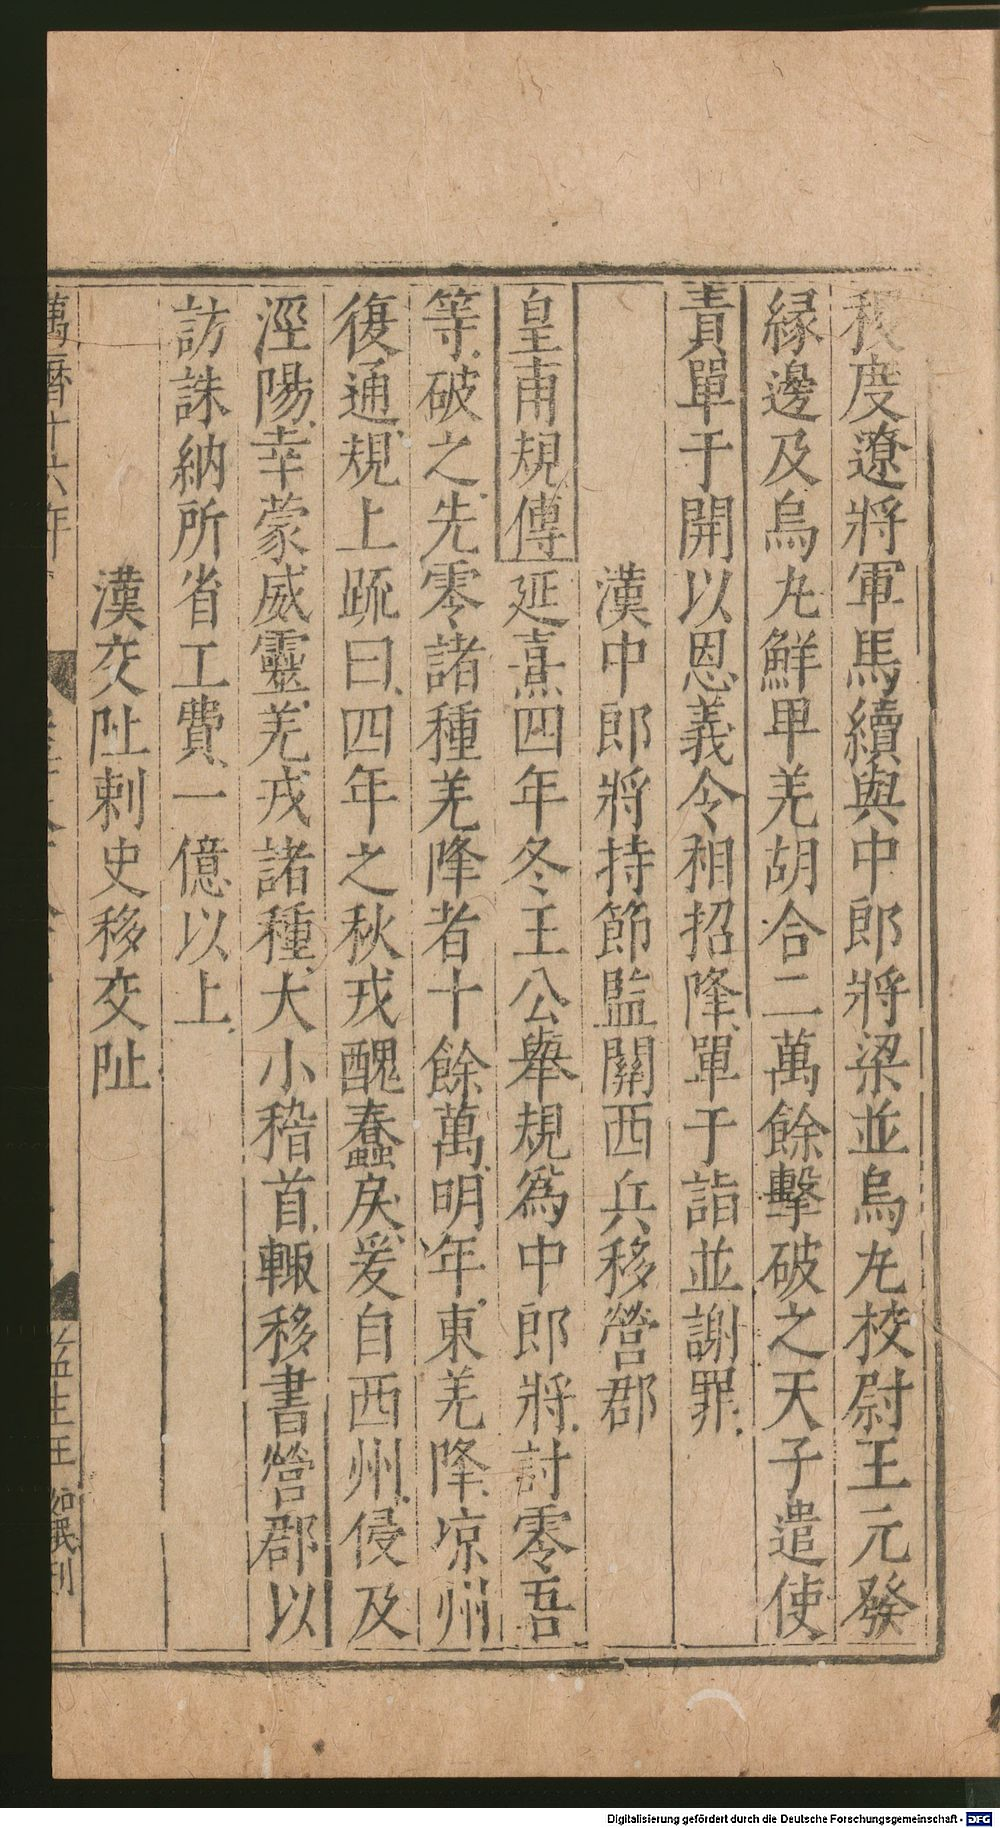 秋度遼將軍馬續與中郎將梁並烏𠂆校尉王元發
緣邊及烏𠂆鮮𤰞羌胡合二萬餘擊破之天子遣使
責單于開以恩義令相招降單于詣並謝罪
漢中郎將持節監關西兵移營郡
皇甫規傳 延熹四年冬王公舉規爲中郎將討零吾
等破之先零諸種羌降者十餘萬明年東羌降凉州
復通規上疏曰四年之秋戎醜蠢戾爰自西州侵及
涇陽幸蒙威靈羌戎諸種大小稽首輙移書營郡以
訪誅納所省工費一億以上
漢交阯刺史移交阯
萬曆十六年
監生王 如 刋
Digitalisierung gefördert durch die Deutsche Forschungsgemeinschaft - DFG